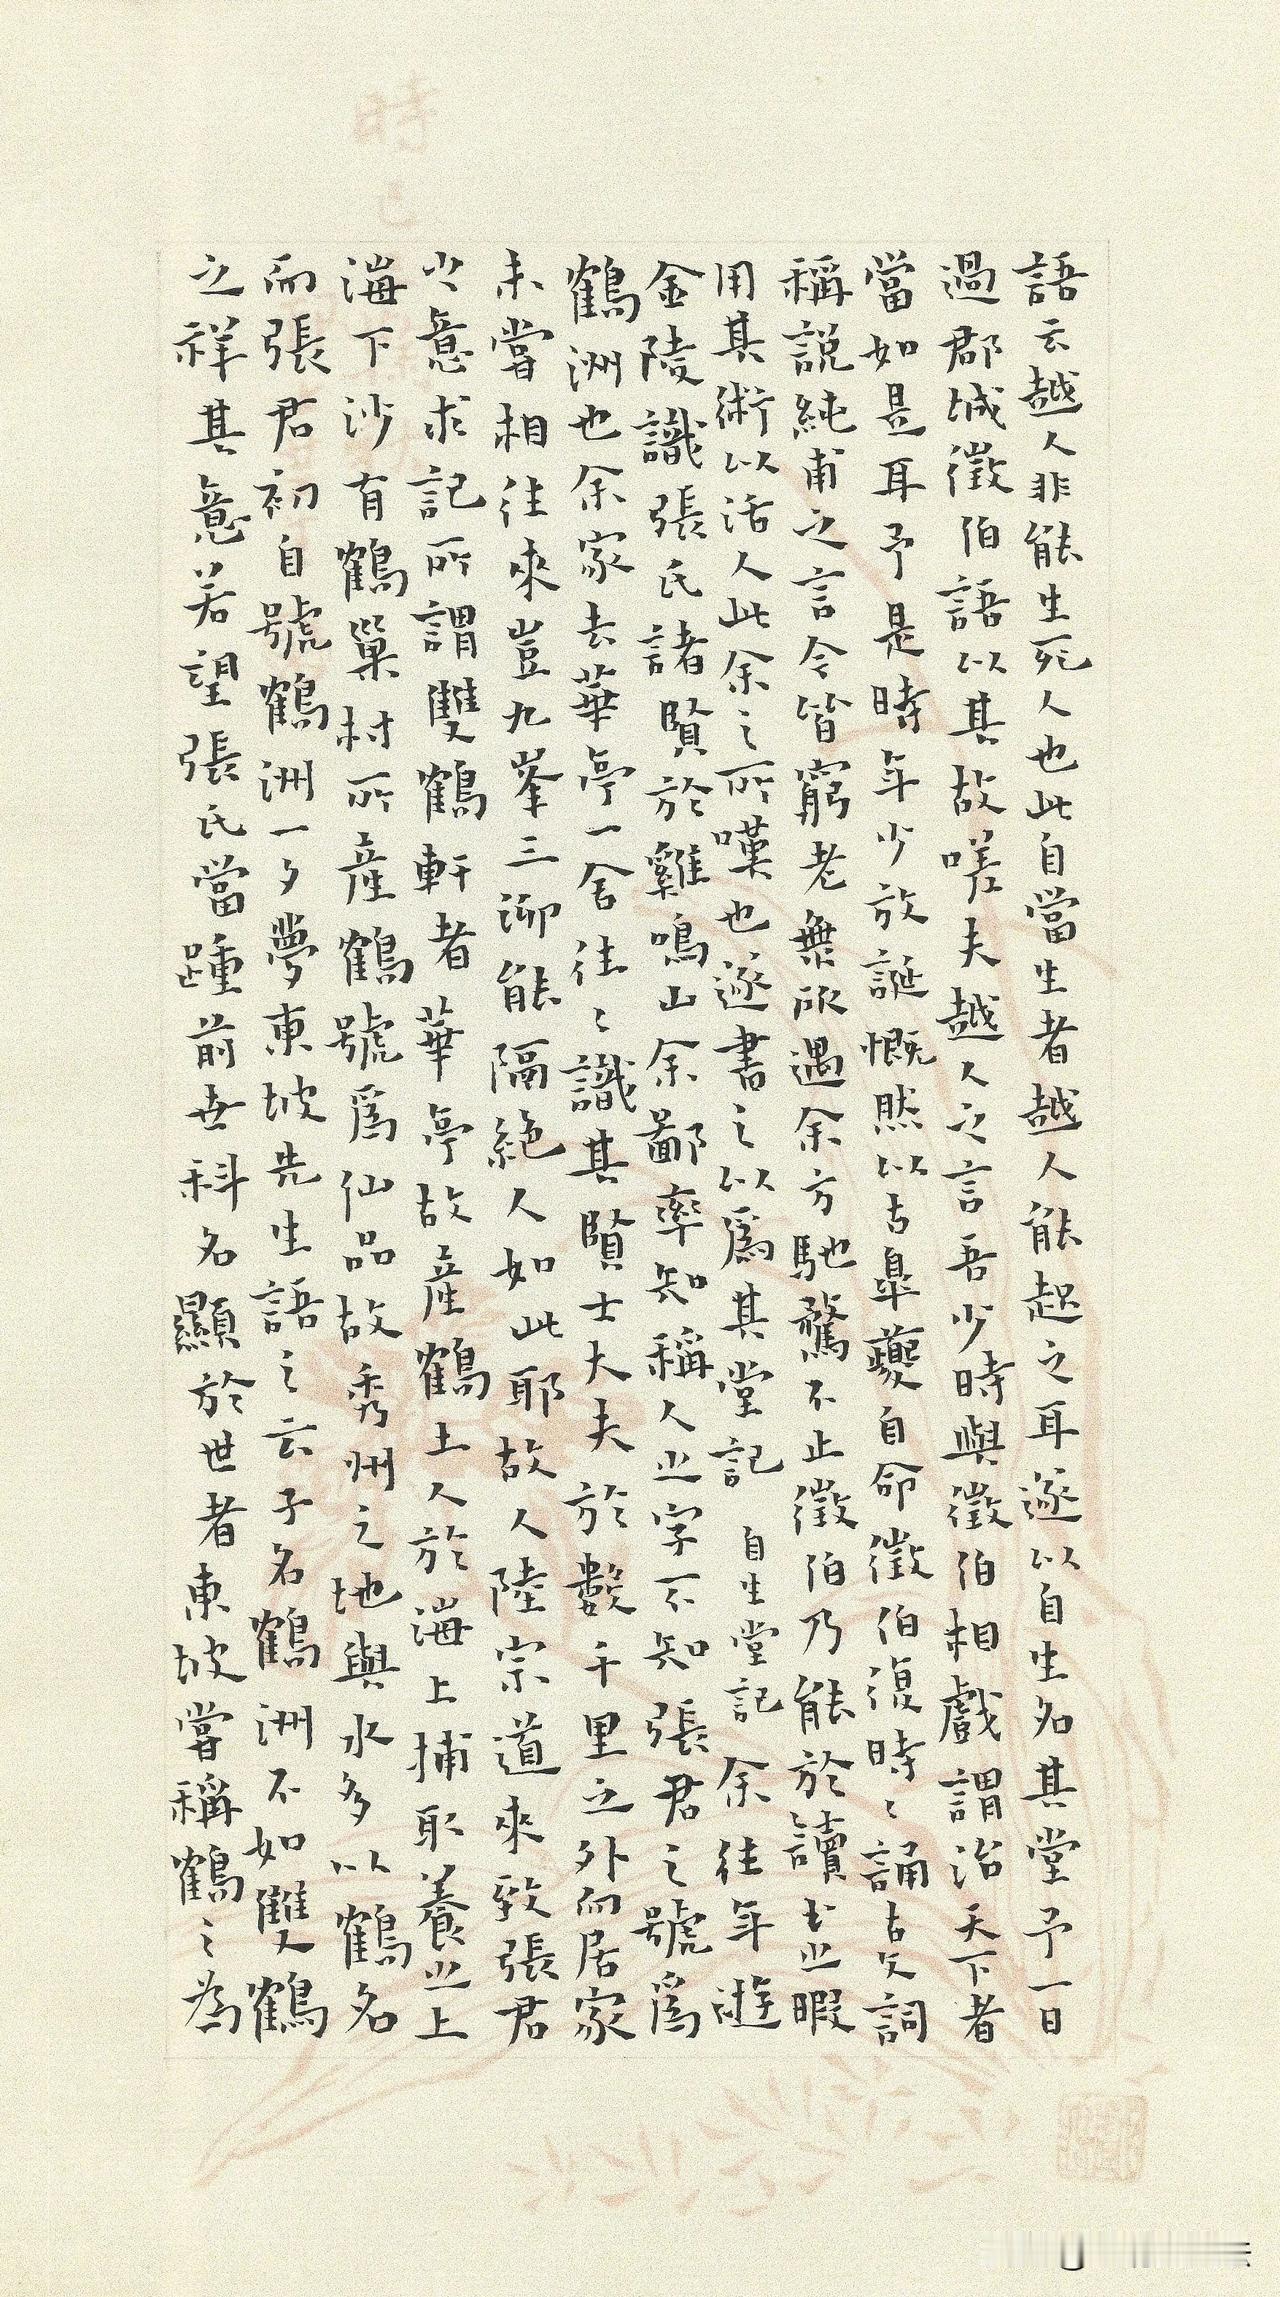 語云越人非能生死人也此自當生者越人能起之耳遂以自生名其堂予一日
過郡城徵伯語以其故嗟夫越人之言吾少時與徵伯相戲謂治天下者
當如是耳予是時年少放誕慨然以古皐夔自命徵伯復時〻誦古文詞
稱說純甫之言今皆窮老無所遇余方馳騖不止徵伯乃能於讀書之暇
用其術以活人此余之所嘆也遂書之以爲其堂記 自生堂記 余往年遊
金陵識張氏諸賢於雞鳴山余鄙率知稱人之字不知張君之號爲
鶴洲也余家去華亭一舍往〻識其賢士大夫於數千里之外而居家
未嘗相往來豈九峯三泖能隔絶人如此耶故人陸宗道來致張君
之意求記所謂雙鶴軒者華亭故産鶴土人於海上捕取養之上
海下沙有鶴巢村所産鶴號爲仙品故秀州之地與水多以鶴名
而張君初自號鶴洲一夕夢東坡先生語之云子名鶴洲不如雙鶴
之祥其意若望張氏當踵前世科名顯於世者東坡嘗稱鶴之為
時